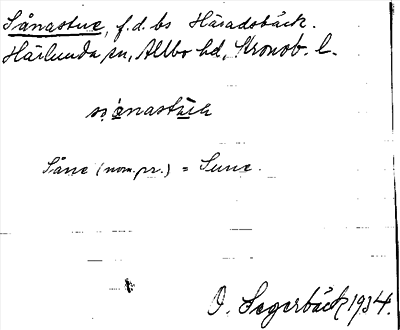 Sånastue, f.d. bs Häradsbäck.
Härlunda sn, Allbo hd, Kronob. l.
Såne (nom. pr.) = Sune.
O. Segerbäck 1934.